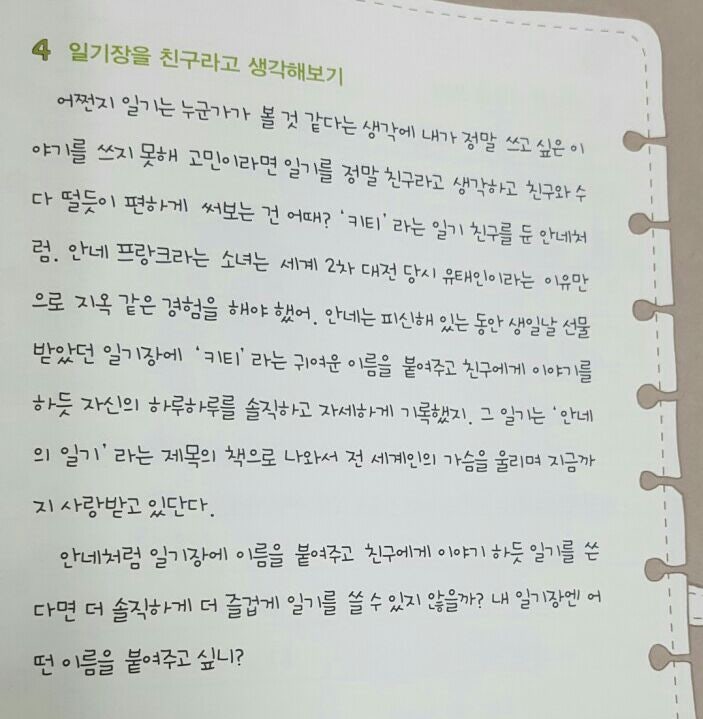 4 일기장을 친구라고 생각해보기
어쩐지 일기는 누군가가 볼 것 같다는 생각에 내가 정말 쓰고 싶은 이
야기를 쓰지 못해 고민이라면 일기를 정말 친구라고 생각하고 친구와 수
다 떨듯이 편하게 써보는 건 어때? ‘키티’라는 일기 친구를 둔 안네처
럼. 안네 프랑크라는 소녀는 세계 2차 대전 당시 유태인이라는 이유만
으로 지옥 같은 경험을 해야 했어. 안네는 피신해 있는 동안 생일날 선물
받았던 일기장에 ‘키티’라는 귀여운 이름을 붙여주고 친구에게 이야기를
하듯 자신의 하루하루를 솔직하고 자세하게 기록했지. 그 일기는 ‘안네
의 일기’라는 제목의 책으로 나와서 전 세계인의 가슴을 울리며 지금까
지 사랑받고 있단다.
안네처럼 일기장에 이름을 붙여주고 친구에게 이야기 하듯 일기를 쓴
다면 더 솔직하게 더 즐겁게 일기를 쓸 수 있지 않을까? 내 일기장엔 어
떤 이름을 붙여주고 싶니?